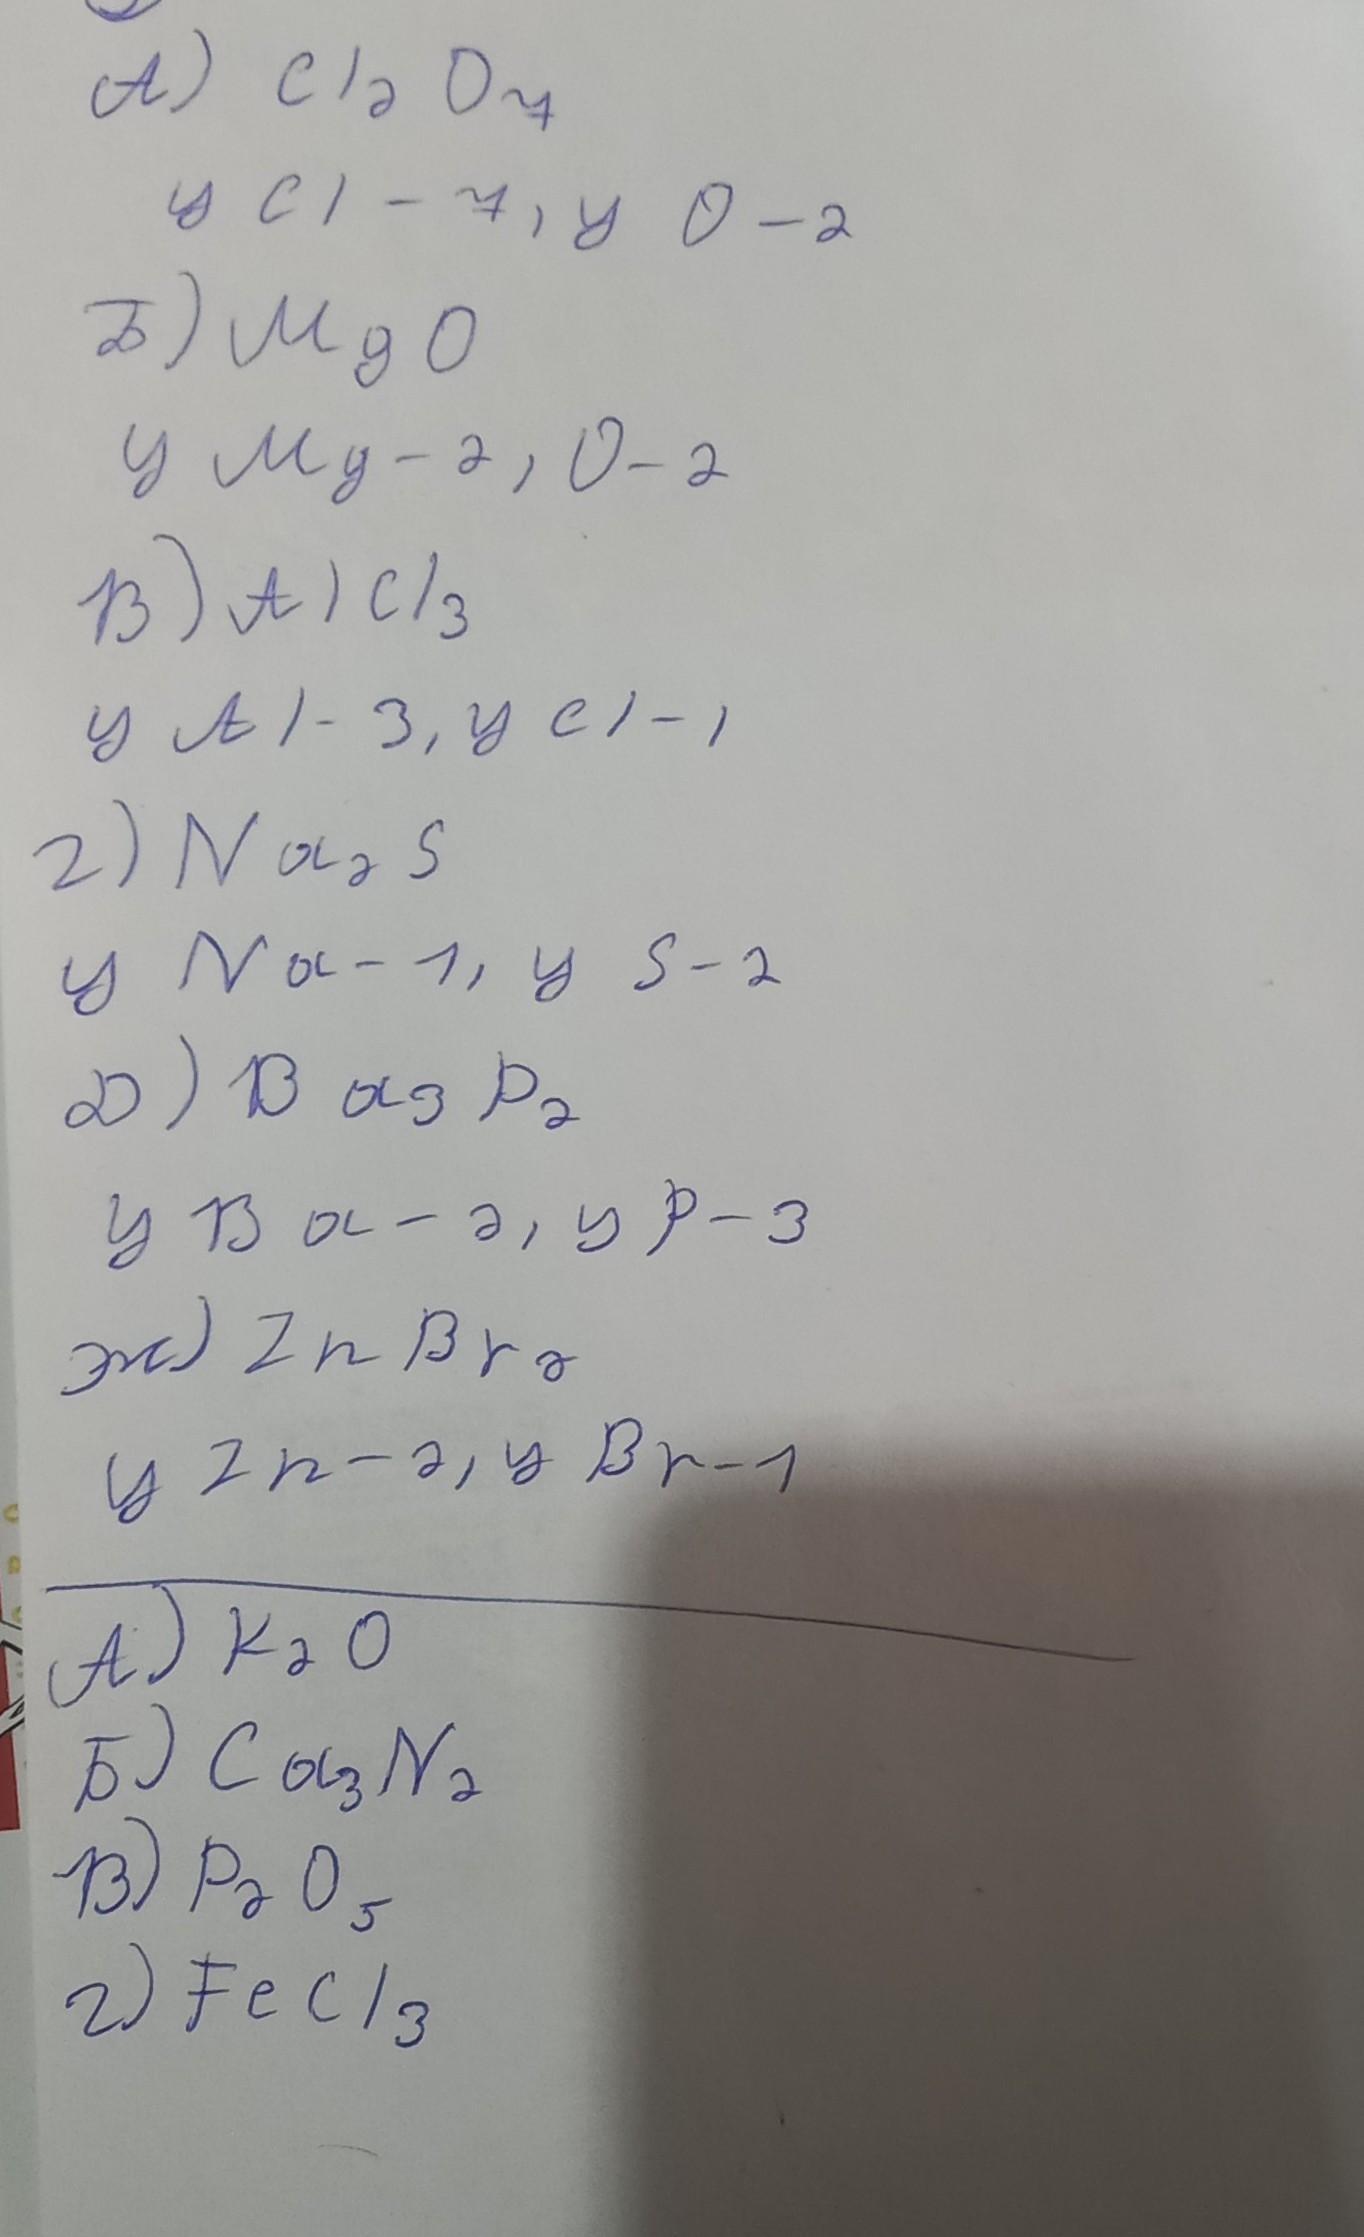 А) Cl2O7
у Cl - 7, у O - 2
Б) MgO
у Mg - 2, O - 2
В) AlCl3
у Al - 3, у Cl - 1
г) Na2S
у Na - 1, у S - 2
Д) Ba3P2
у Ba - 2, у P - 3
ж) ZnBr2
у Zn - 2, у Br - 1
А) K2O
Б) Ca3N2
В) P2O5
г) FeCl3